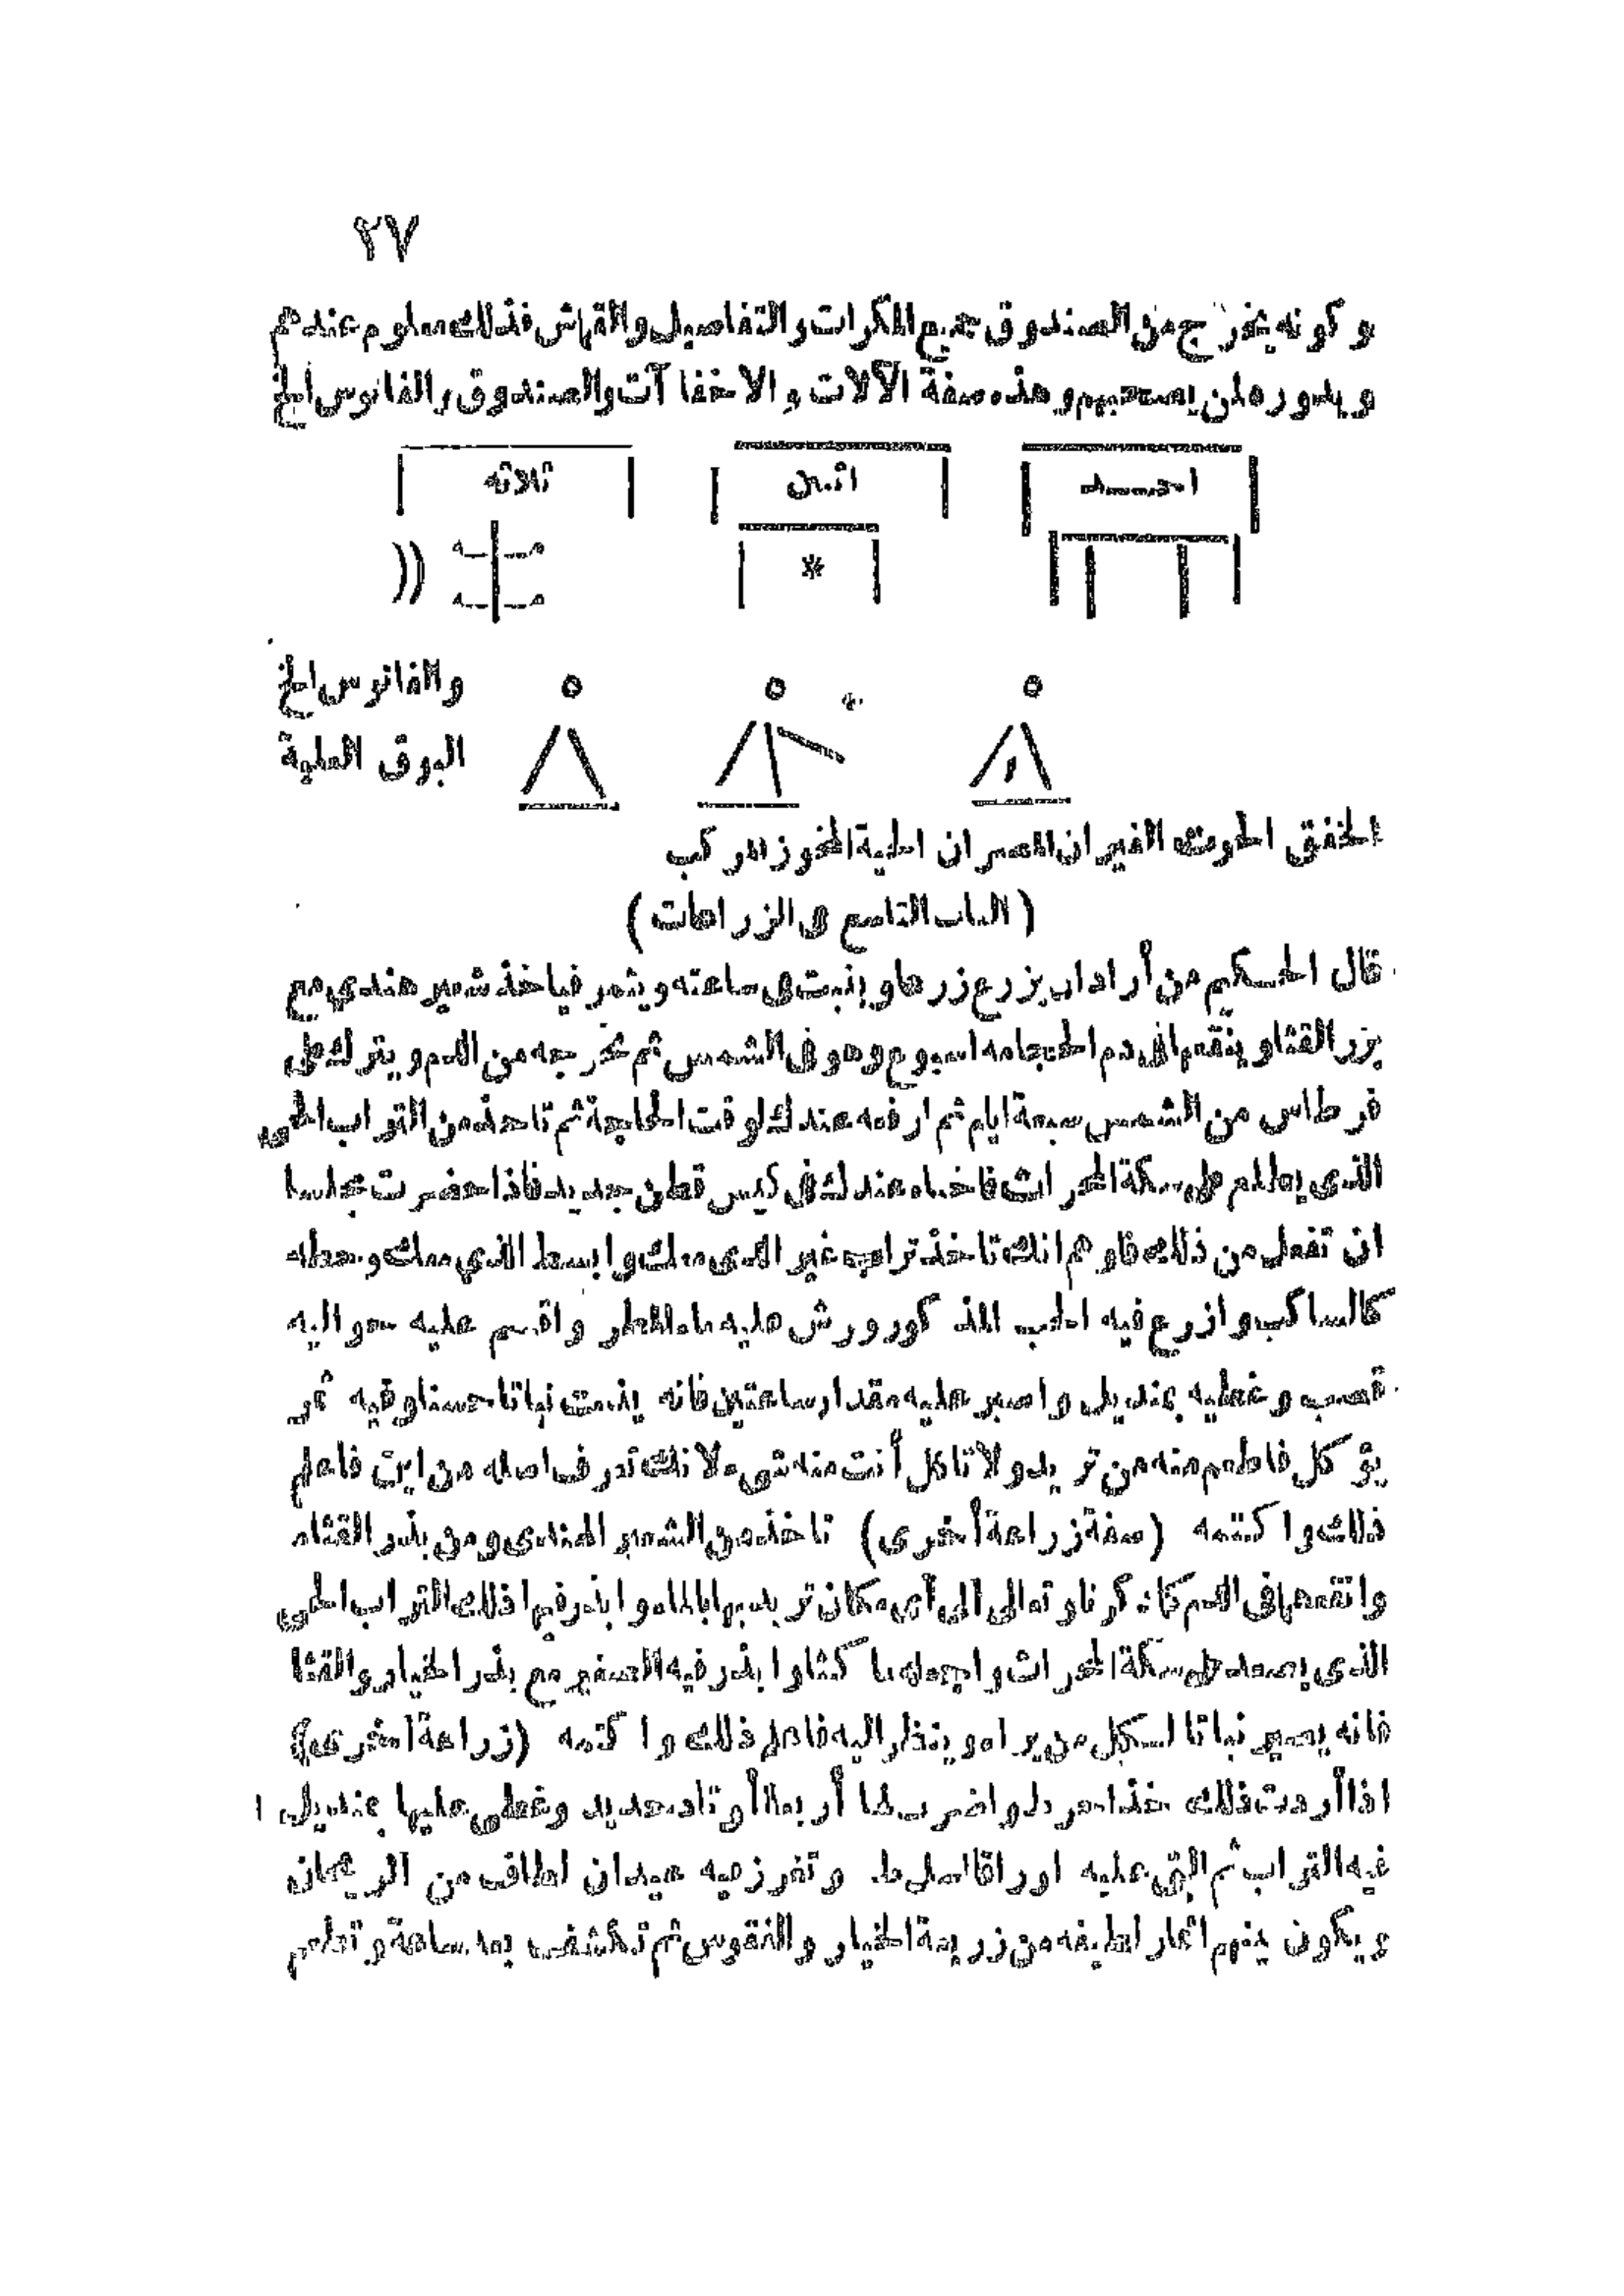 ٢٧
وكونه يخرج من الصندوق جميع المكرات والتفاصيل والقماش فذلك معلوم عندهم
ويدوره لمن يصحبهم وهذه صفة الآلات والاخفا آت والصندوق والفانوس الخ
احد اثنين ثلاثه
والفانوس الخ
البوق العلبة
الخفق الحوت الغيران المصران الحية المركب
(الباب التاسع فى الزراعات)
قال الحكيم من أراد ان يزرع زرعا وينبت فى ساعته ويثمر فياخذ شعير هندي مع
بزر القثاو ينقعها فى دم الحجامه اسبوع وهو فى الشمس ثم تخرجه من الدم ويترك على
قرطاس من الشمس سبعة ايام ثم ارفعه عندك لوقت الحاجة ثم تاخذ من التراب الحى
الذى يطلع على سكة المحراث فاخباه عندك فى كيس قطن جديد فاذا حضرت مجلسا
ان تفعل من ذلك فاوهم انك تاخذ تراب غير الذى معك وابسط الذي معك وحطه
كالساكب وازرع فيه الحب المذكور ورش عليه ماء المطر واقسم عليه حواليه
قصب وغطيه بمنديل واصبر عليه مقدار ساعتين فانه ينبت نباتا حسنا وفيه ثمر
يؤكل فاطعم منه من تريد ولا تاكل أنت منه شىء لانك تعرف اصله من اين فاعلم
ذلك واكتمه (صفة زراعة أخرى) تاخذ من الشعير الهندى ومن بذر القثاء
وانقعها فى الدم كما ذكرنا وتعالى الى أى مكان تريد بها بالماء وابذر فيها ذلك التراب الحى
الذى يصعد على سكة المحراث واجعله كثا وابذر فيه الصغير مع بذر الخيار والقثا
فانه يصير نباتا لكل من يراه وينظر اليه فاعلم ذلك واكتمه (زراعة أخرى)
اذا أردت ذلك خذ واضرب لها أربعة أوتاد حديد وغطى عليها بمنديل
فيه التراب ثم القى عليه اوراقا وتغرز فيه عيدان لطاف من الريحان
ويكون بينهم اثمار لطيفه من زريعة الخيار والفقوس ثم تكشف بعد ساعة وتطعم